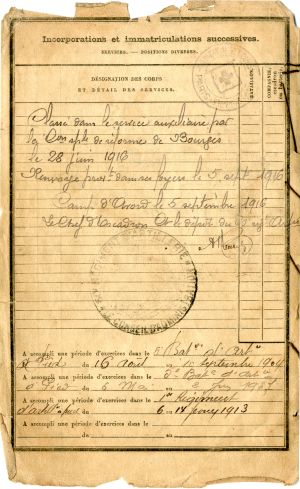 Incorporations et immatriculations successives.
SERVICES. — POSITIONS DIVERSES.
DÉSIGNATION DES CORPS
ET DÉTAIL DES SERVICES.
BATAILLONS.
COMPAGNIE,
Classé dans le service auxiliaire par
la Con sple de réforme de Bourges
le 28 juin 1916
Renvoyé prov. dans ses foyers le 5 sept 1916
Camp d'Avord 5 septembre 1916
Le Chef d'Escadron Ct le dépôt du
A accompli une période d'exercices dans le 5e Baton d'Artie
à pied du 16 août au septembre 1904
A accompli une période d'exercices dans le 5e Baton d'Artie
à Pied du 6 Mai au 1907
A accompli une période d'exercices dans le 1er Régiment
d'artie à pied du 6 au 14 1913
A accompli une période d'exercices dans le
du au